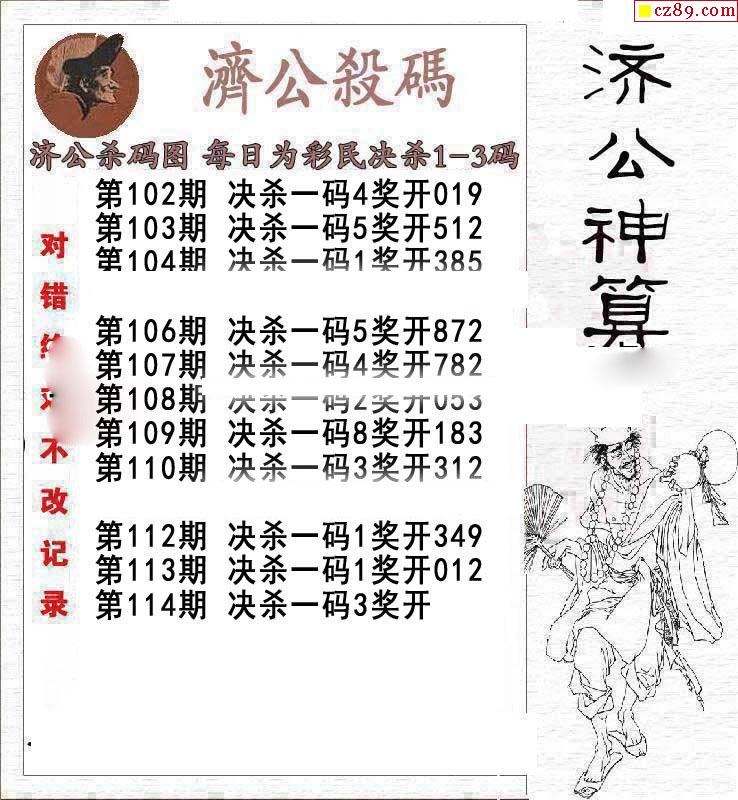 cz89.com
濟公殺碼
济公杀码图 每日为彩民决杀1-3码
第102期 决杀一码4奖开019
第103期 决杀一码5奖开512
第104期 决杀一码1奖开385
第106期 决杀一码5奖开872
第107期 决杀一码4奖开782
第108期 决杀一码2奖开053
第109期 决杀一码8奖开183
第110期 决杀一码3奖开312
第112期 决杀一码1奖开349
第113期 决杀一码1奖开012
第114期 决杀一码3奖开
对错
不改记录
济公神算